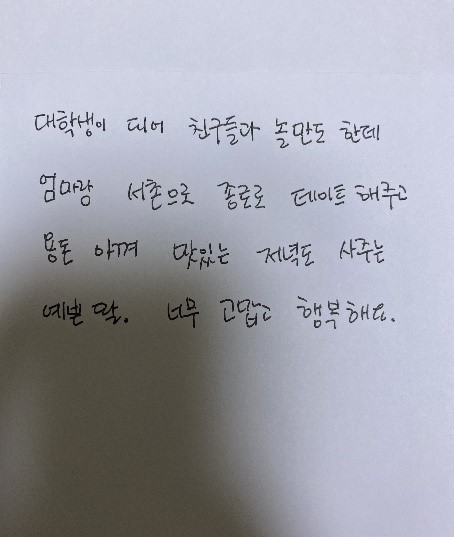 대학생이 되어 친구들과 놀만도 한데
엄마랑 서촌으로 종로로 데이트 해주고
용돈 아껴 맛있는 저녁도 사주는
예쁜 딸. 너무 고맙고 행복해요.